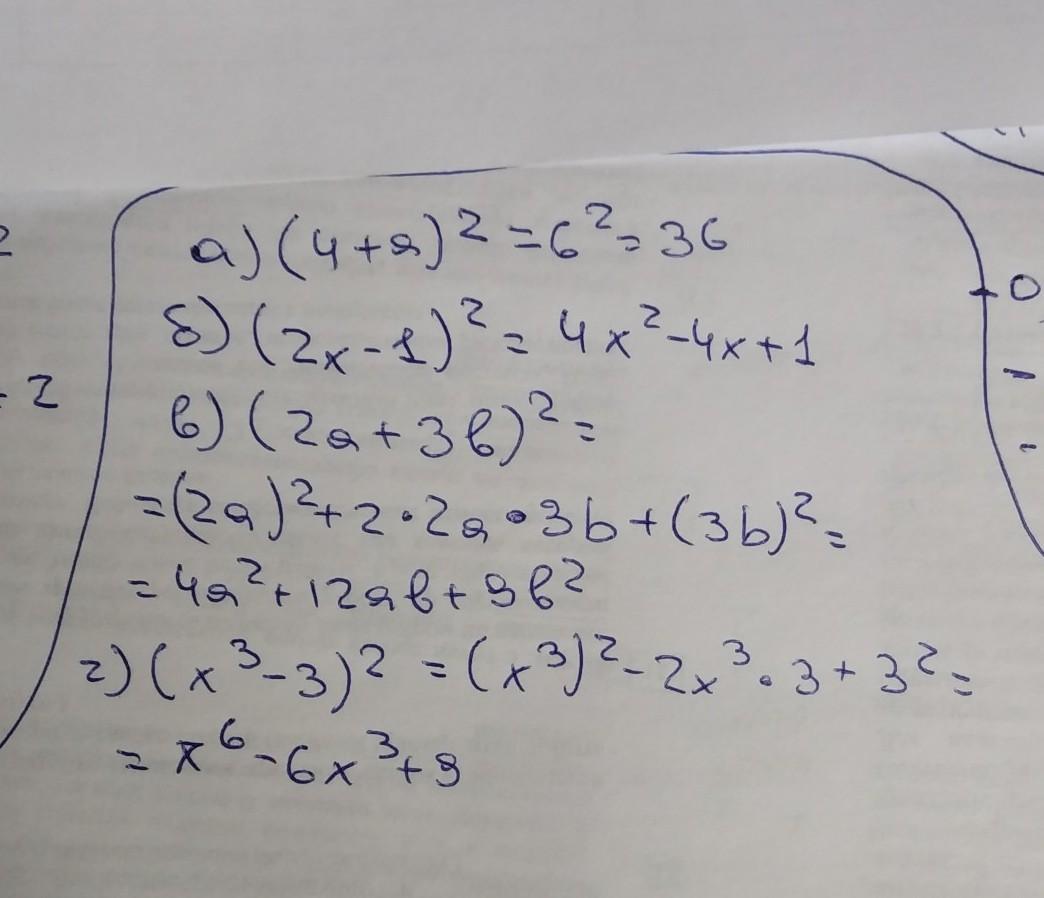 а) (4+a)² = 6² = 36
б) (2x-1)² = 4x²-4x+1
в) (2a+3b)² =
=(2a)²+2·2a·3b+(3b)² =
= 4a²+12ab+9b²
г) (x³-3)² = (x³)²-2x³·3+3² =
= x⁶-6x³+9
2
- 2
0
-
-